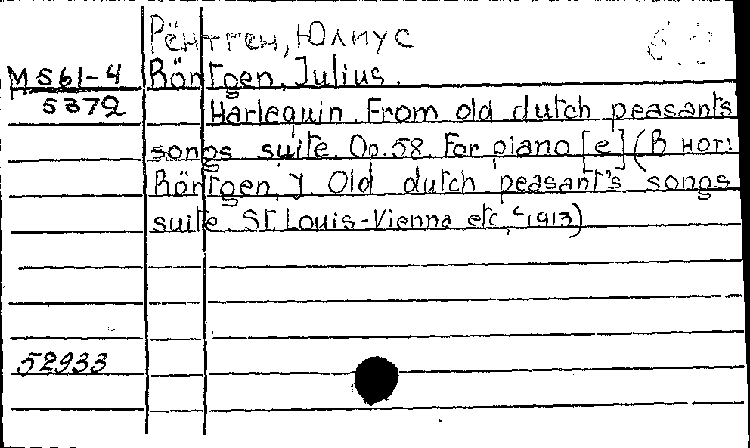 Рёнтген, Юлиус
M S61-4 Röntgen, Julius.
5372 Harlequin. From old dutch peasants
songs suite. Op.58. For piano [e] (В нот:
Röntgen, J. Old dutch peasant's songs
suite. St. Louis-Vienna etc, c1913)
52933